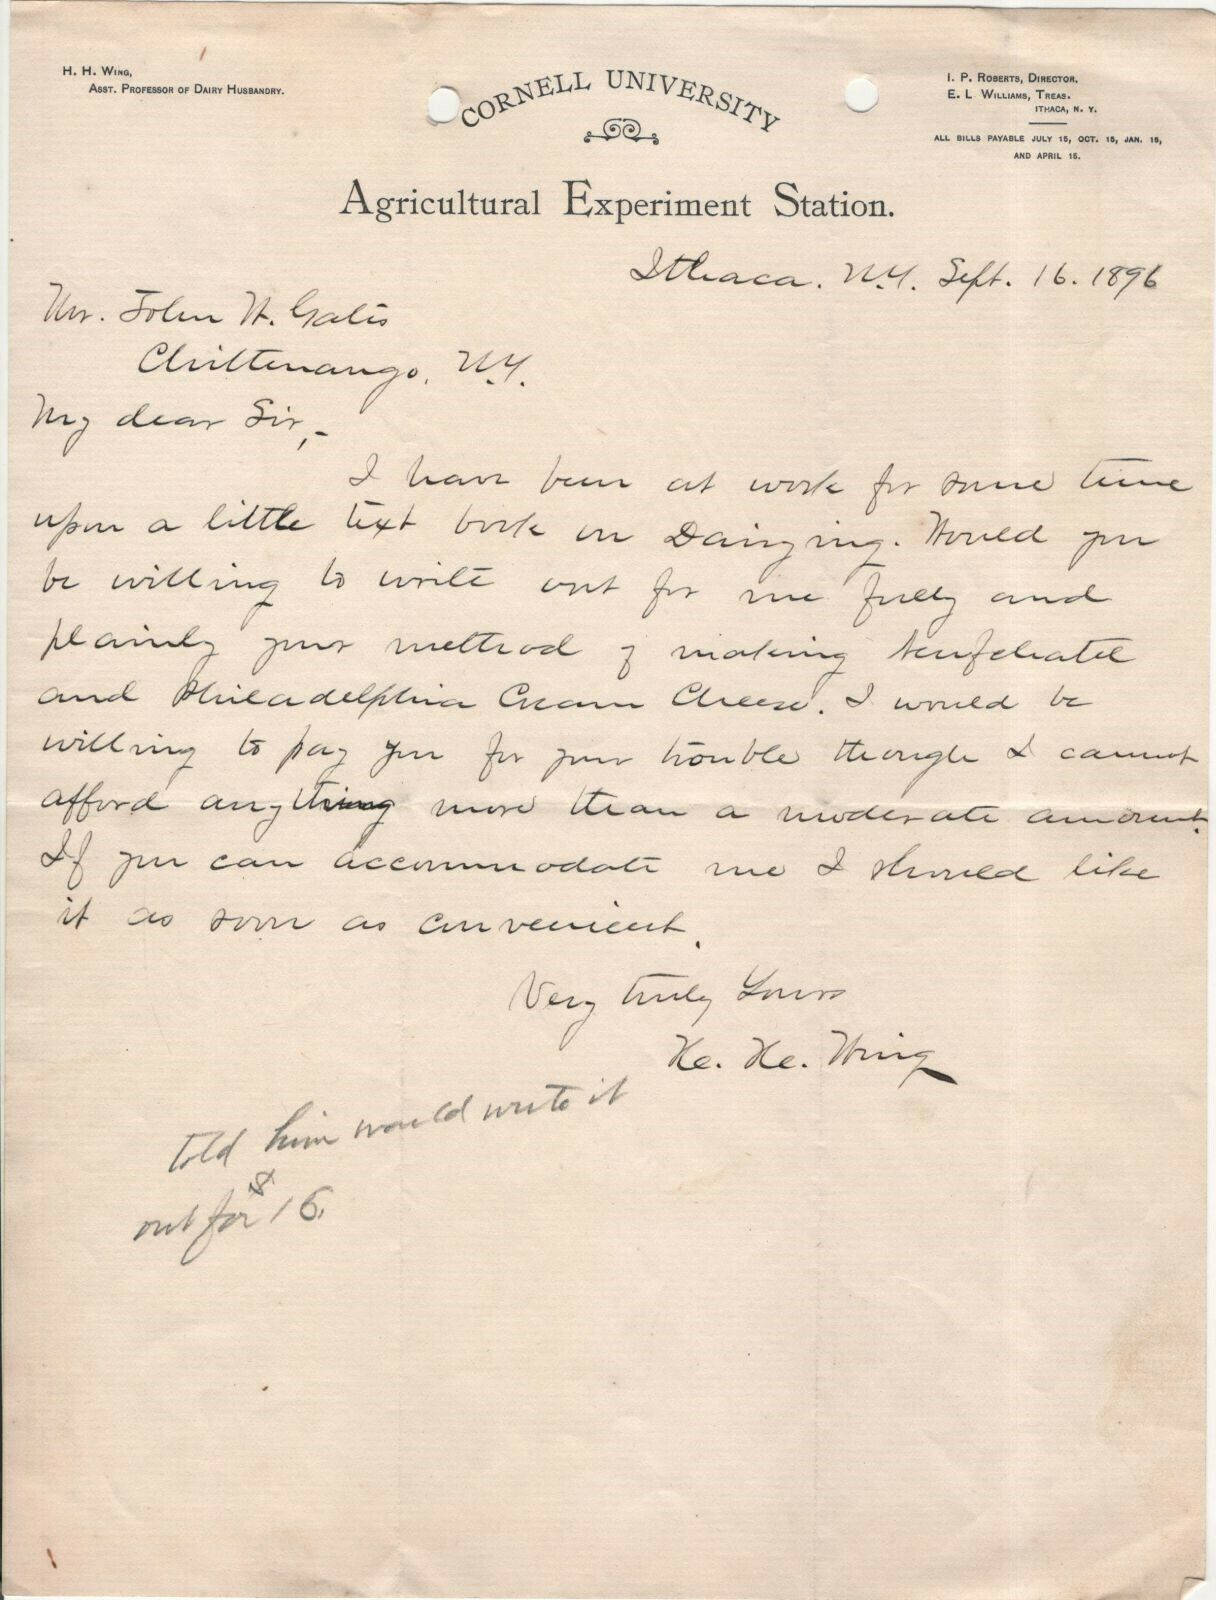 H. H. Wing,
Asst. Professor of Dairy Husbandry.
CORNELL UNIVERSITY
I. P. Roberts, Director.
E. L Williams, Treas.
ITHACA, N. Y.
ALL BILLS PAYABLE JULY 15, OCT. 15, JAN. 15,
AND APRIL 15.
Agricultural Experiment Station.
Ithaca. N.Y. Sept. 16. 1896
Mr. John W. Gates
Chittenango, N.Y.
My dear Sir,-
I have been at work for some time
upon a little text book on Dairying. Would you
be willing to write out for me fully and
plainly your method of making Neufchatel
and Philadelphia Cream Cheese. I would be
willing to pay you for your trouble though I cannot
afford anything more than a moderate amount.
If you can accommodate me I should like
it as soon as convenient.
Very truly Yours
H. H. Wing
told him would write it
out for $15.